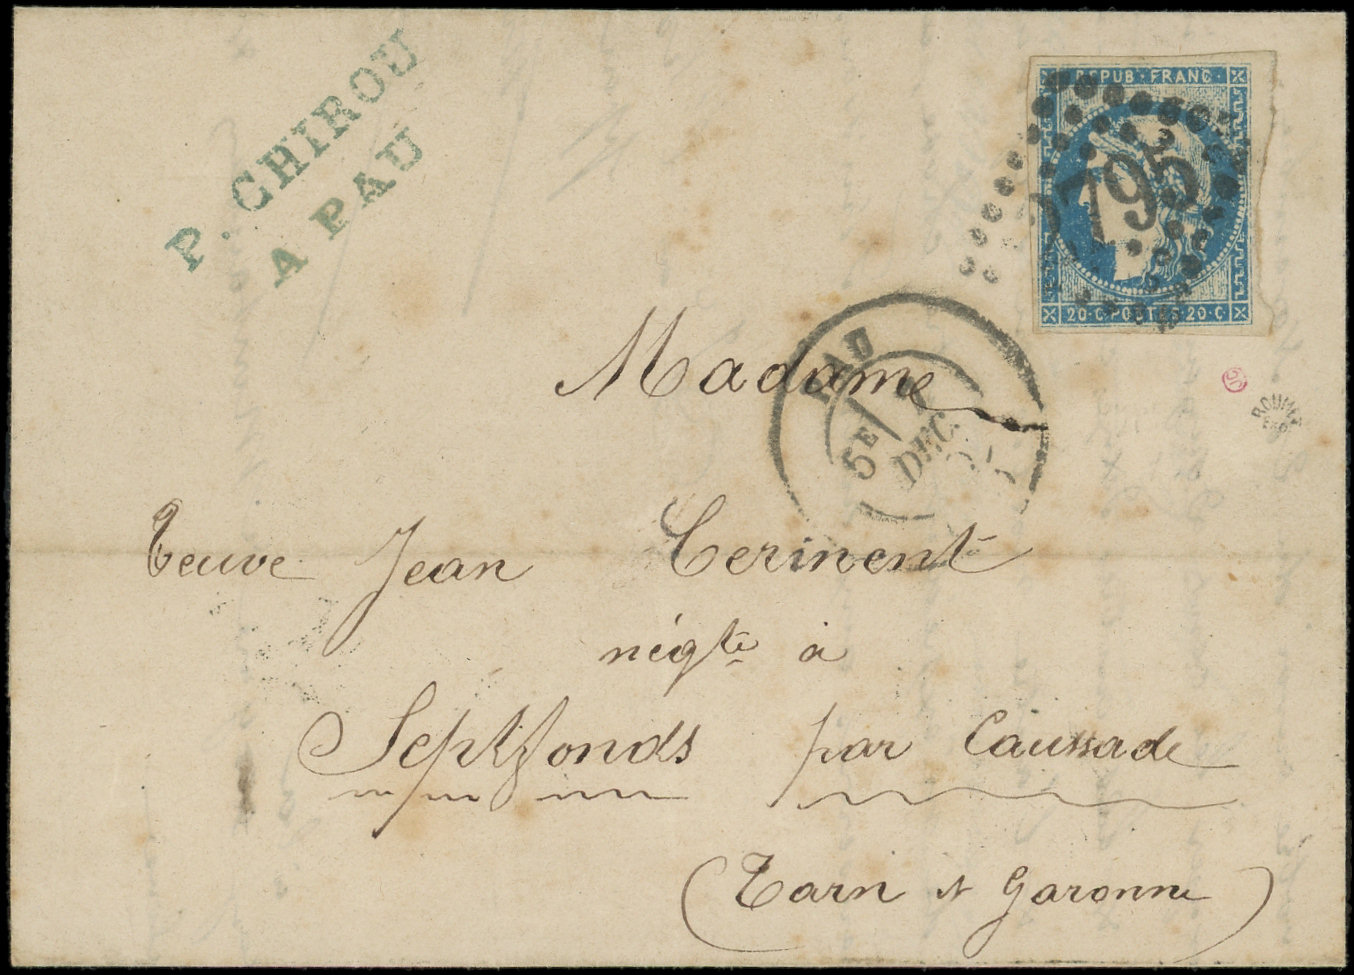 P. CHIROU
A PAU
REPUB·FRANC
2795
20·C·POSTES·20·C
PAU
5E
DEC.
Madame
Veuve Jean Cerinent
négte à
Septfonds par Caussade
(Tarn et Garonne)